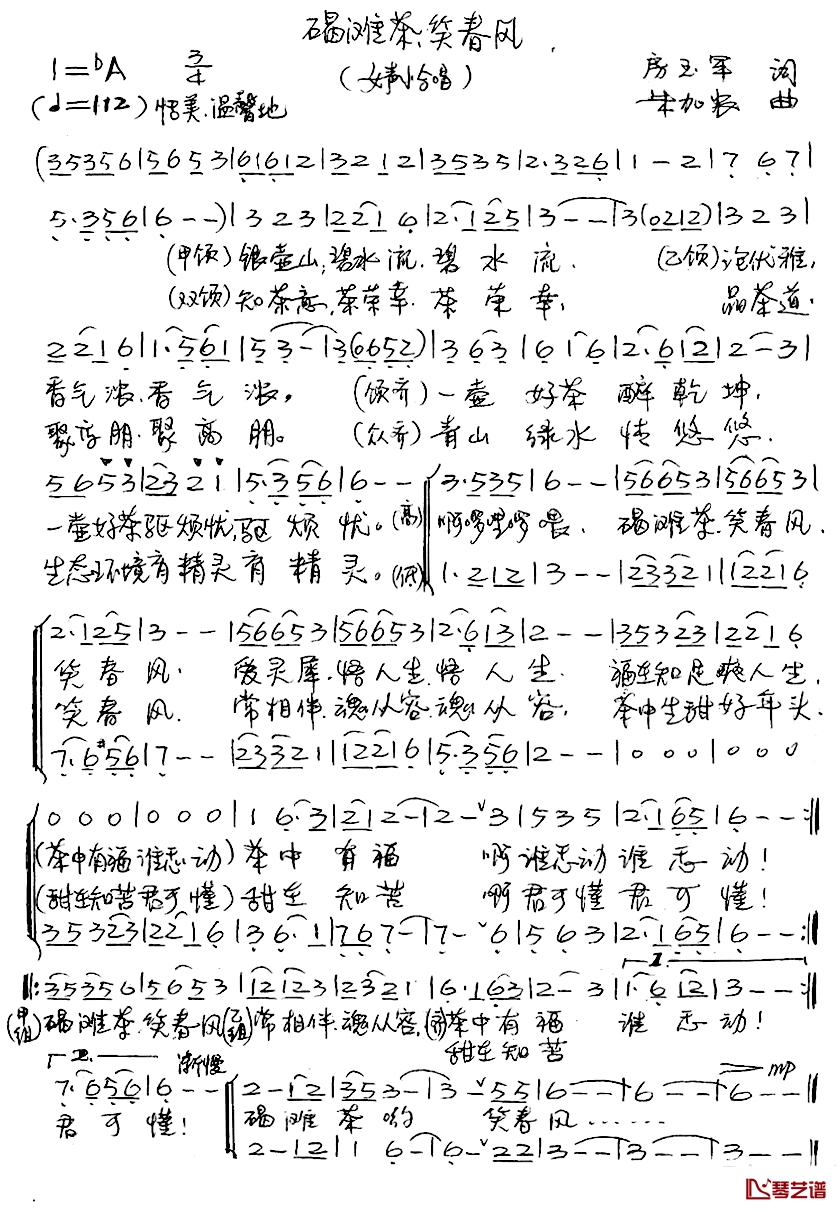 碣滩茶,笑春风
(女声小合唱)
1=♭A 3/4
房玉军 词
朱加农 曲
(♩=112) 恬美、温馨地
(35356|5653|61612|3212|3535|2·326|1-2|767|
5·356|6--)|323|2216|2·125|3--|3(0212)|323|
(甲领)银壶山,碧水流,碧水流. (乙领)论优雅,
(双领)知茶意,茶荣幸.茶荣幸, 品茶道.
2216|1·561|53-|3(0652)|363|616|2·612|2-3|
香气浓,香气浓。(领齐)一壶好茶醉乾坤,
聚高朋.聚高朋。(众齐)青山绿水情悠悠.
5653|2321|5·356|6--|3·535|6--|56653|56653|
一壶好茶驱烦忧,驱烦忧。(高)啊啰哩啰喂.碣滩茶.笑春风.
生态环境育精灵育精灵。(低)
1·212|3--|23321|12216
2·125|3--|56653|56653|2·613|2--|35323|2216
笑春风. 爱灵犀.悟人生.悟人生. 福在知足爽人生,
笑春风. 常相伴.魂从容.魂从容, 茶中生甜好年头.
7·6#56|7--|23321|12216|5·356|2--|000|000
000|000|16·3|212-|2-3|535|2·165|6--:||
(茶中有福谁忐动)茶中有福 啊谁忐动谁忐动!
(甜在知苦君可懂)甜在知苦 啊君可懂君可懂!
35323|2216|36·1|767-|7-6|563|2·165|6--:||
||:35356|5653|12123|2321|6·163|2-3|1·612|3--:||
(甲组)碣滩茶.笑春风(乙组)常相伴.魂从容,(齐)茶中有福 谁忐动!
甜在知苦
渐慢
mp
7·656|6--|2-12|353-|3-55|6--|6--|6--||
君可懂! 碣滩茶哟 笑春风……
2-12|16-|6-22|3--|3--|3--||
琴艺谱